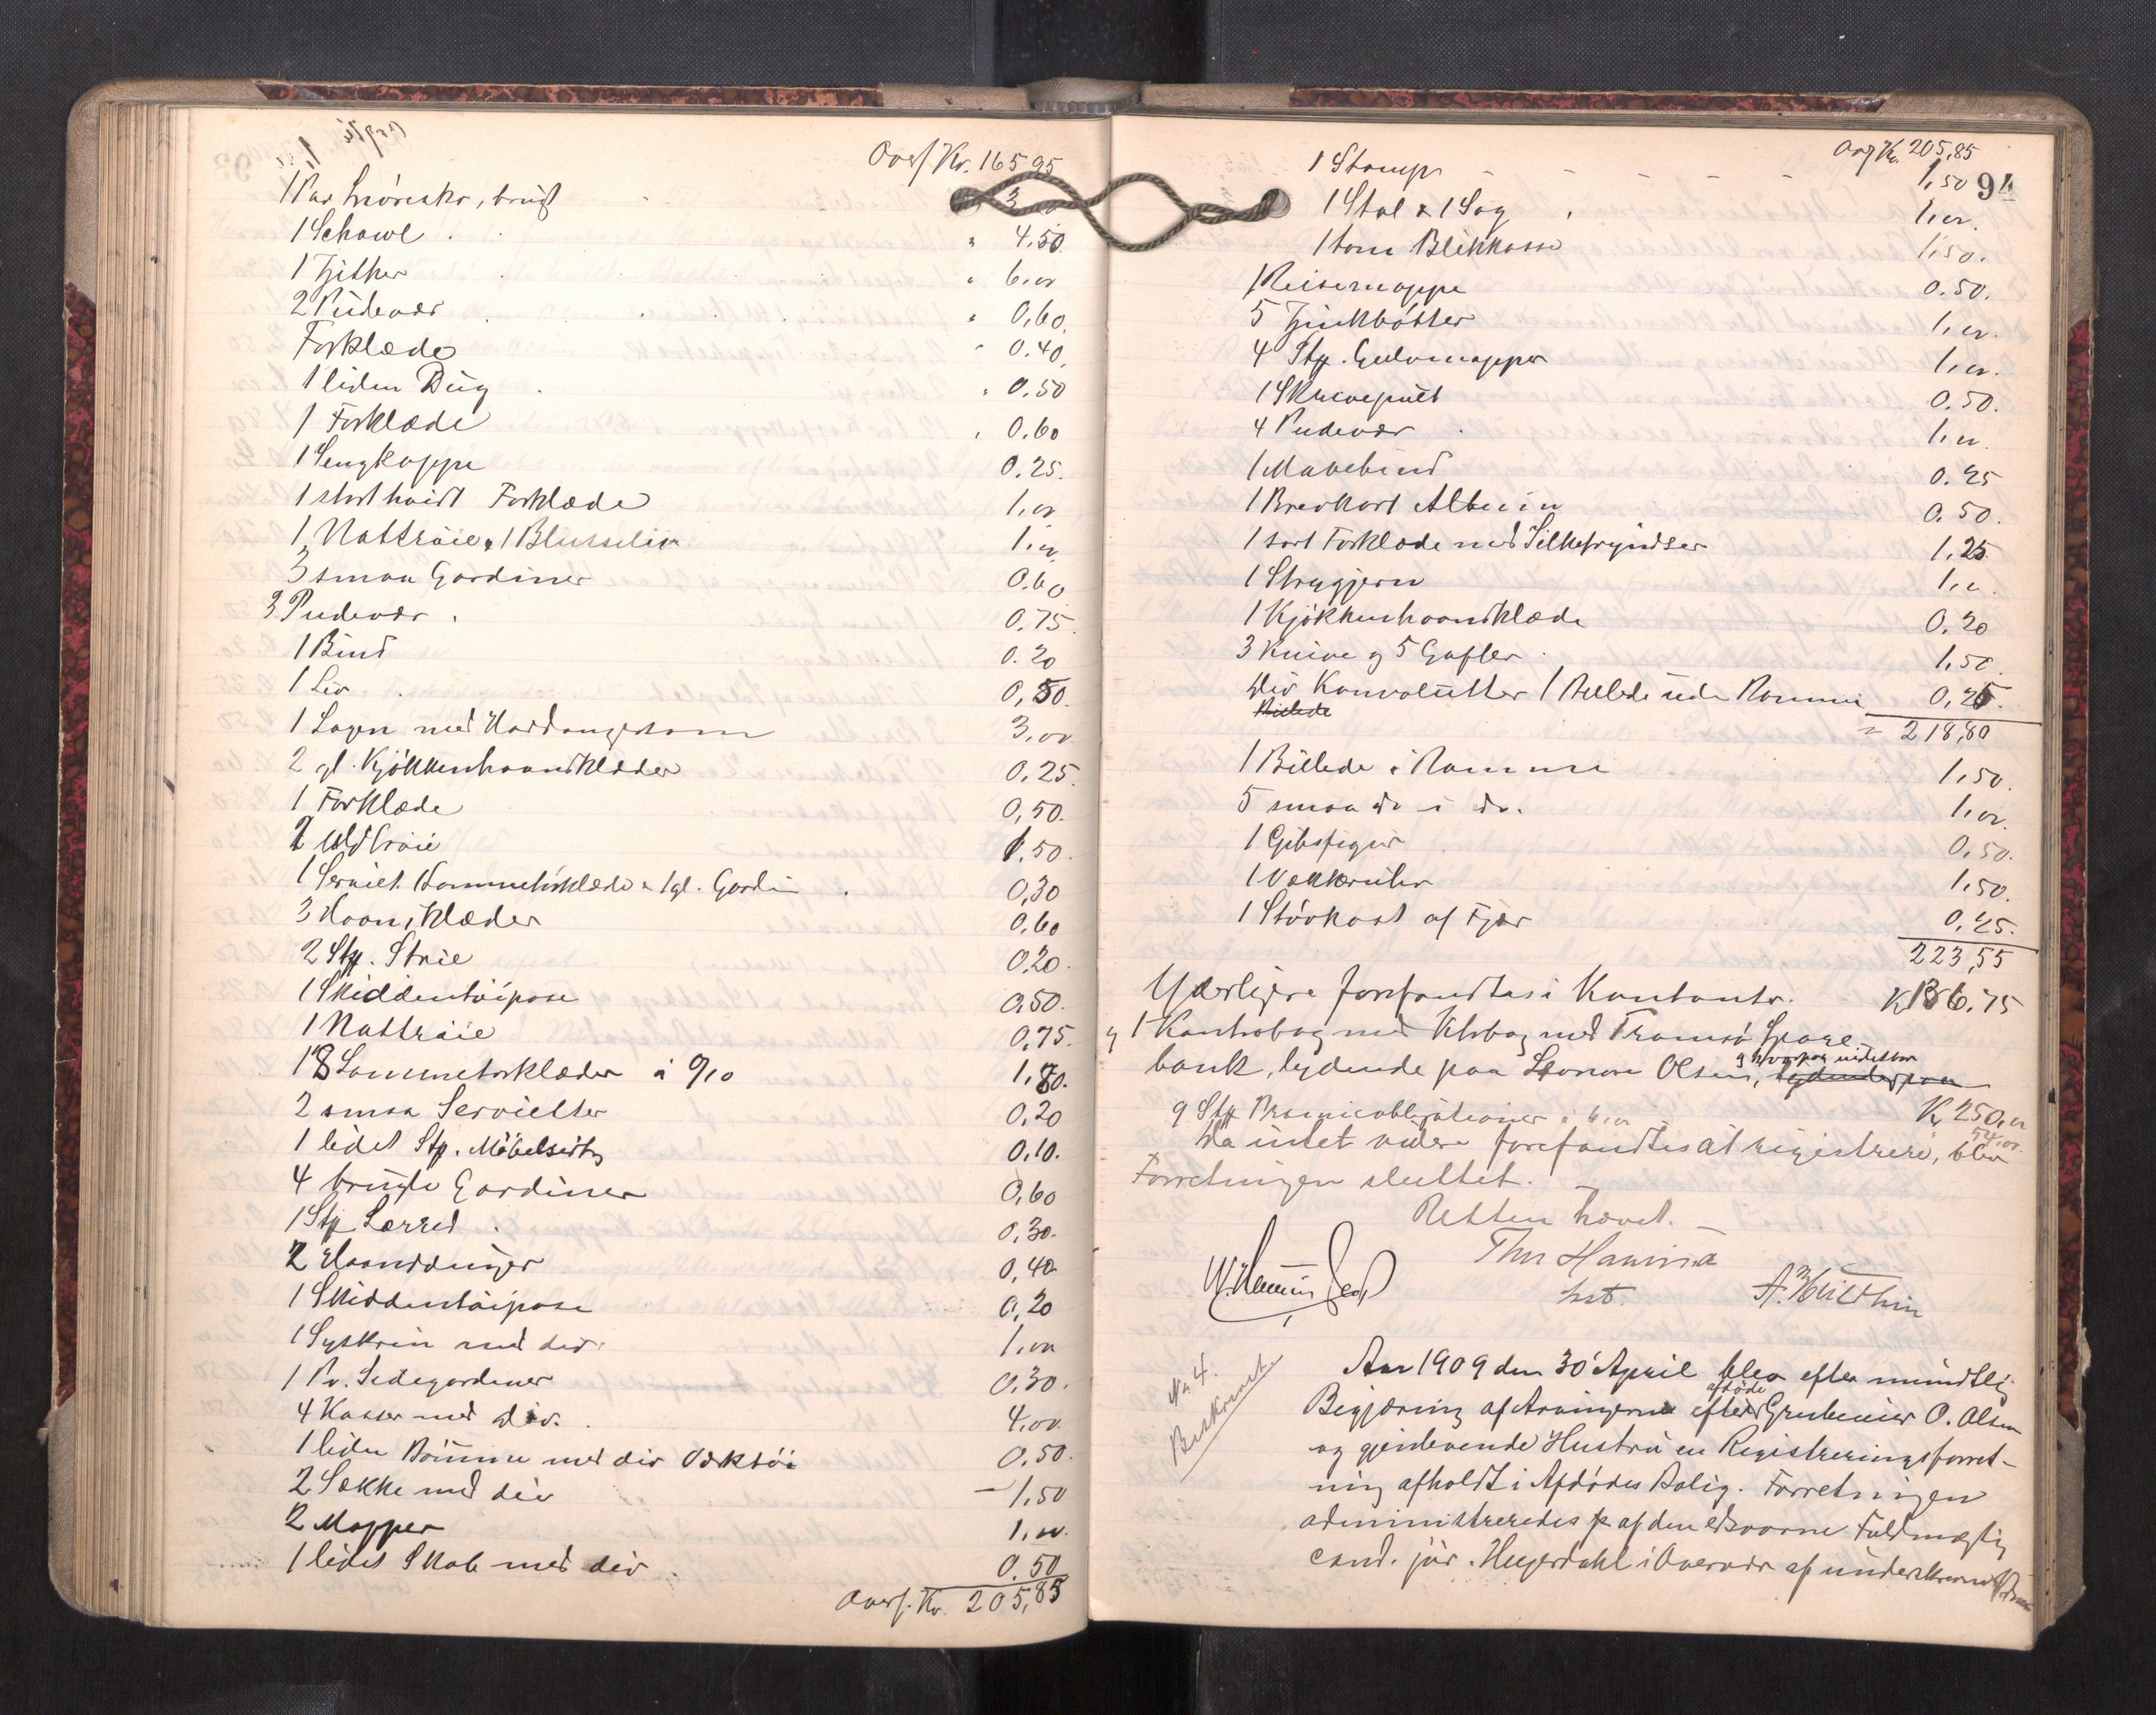 Overf Kr. 165,95
1 Par Snøresko, brugt 3
1 Schawl " 4.50
1 Zither " 6,00
2 Pudevar " 0,60
Forklæde " 0.40
1 liden Dug " 0.50
1 Forklæde " 0.60
1 Sengkappe 0.25.
1 stort hvidt Forklæde 1,00
1 Nattrøie & 1 Bluseliv 1,00
3 smaa Gardiner 0.60
3 Pudevar 0.75
1 Bind 0.20
1 Liv 0,50.
1 Lagen med Hardangersøm 3,00
2 gl. Kjøkkenhaandklæder 0,25
1 Forklæde 0,50.
2 Uldtrøie 1.50.
1 Serviet 1 Lommetørklæde & 1 gl. Gardin 0,30
3 Haandklæder 0,60
2 Stk. Strie 0,20.
1 Skiddentøipose 0,50.
1 Nattrøie 0,75.
18 Lommetørklæder à 0/10 1,80.
2 smaa Servietter 0.20
1 lidet Stk. Møbelsirts 0.10.
4 brugte Gardiner 0,60
1 Stk Lærred 0.30.
2 Haandduger 0,40
1 Skiddentøipose 0,20
1 Syskrin med div. 1,00
1 Pr. Sidegardiner 0.30.
4 Kasser med div. 4,00
1 liden Tømme med div Værktøi 0.50.
2 Sække med div 1,50
2 Mopper 1,00.
1 lidet Skab med div 0.50
Overf. Kr. 205,85
Ovf Kr. 205,85
94
1 Stamp 1,50
1 Stol & 1 Sag 1,00.
1 tom Blikkasse 1,50.
1 Reisemappe 0.50.
5 Zinkbøtter 1,00.
4 Stk. Gulvmapper 1,00.
1 Skrivepult 0.50.
4 Pudevar 1,00
1 Mavebind 0.25
1 Brevkort Album 0.50.
1 sort Forklæde med Silkefryndser 1.25
1 Strygjern 1,00
1 Kjøkkenhaandklæde 0.20
3 Knive og 5 Gafler 1.50
Div Konvolutter 1 Billede uden Ramme 0,25.
Billede
218,80
1 Billede i Ramme 1,50.
5 smaa do i do. 1,00.
1 Gibsfigur 0,50.
1 Vækkeruhr 1,50.
1 Støvkost af Fjær 0,25.
223,55
Yderligere forefandtes i Kontanter. Kr 136.75
og 1 Kontrabog med Tromsø Spare-
bank, lydende paa Leonore Olsen, lydende paa
Kr 250,00
9 Stk Præmieobligationer à 6,00 54,00.
Da intet videre forefandtes at registrere, blev
Forretningen sluttet.
Retten hævet.
A. Hulthin
No 4.
Beskrevet
Aar 1909 den 30 April blev efter mundtlig
Begjæring af Arvingerne efter afdøde Grubeeier O. Olsen
og gjenlevende Hustru en Registreringsforret-
ning afholdt i Afdødes Bolig. Forretningen
administreredes af den edsvorne Fuldmægtig
cand. jur. Heyerdahl i Overvær af underskrevne